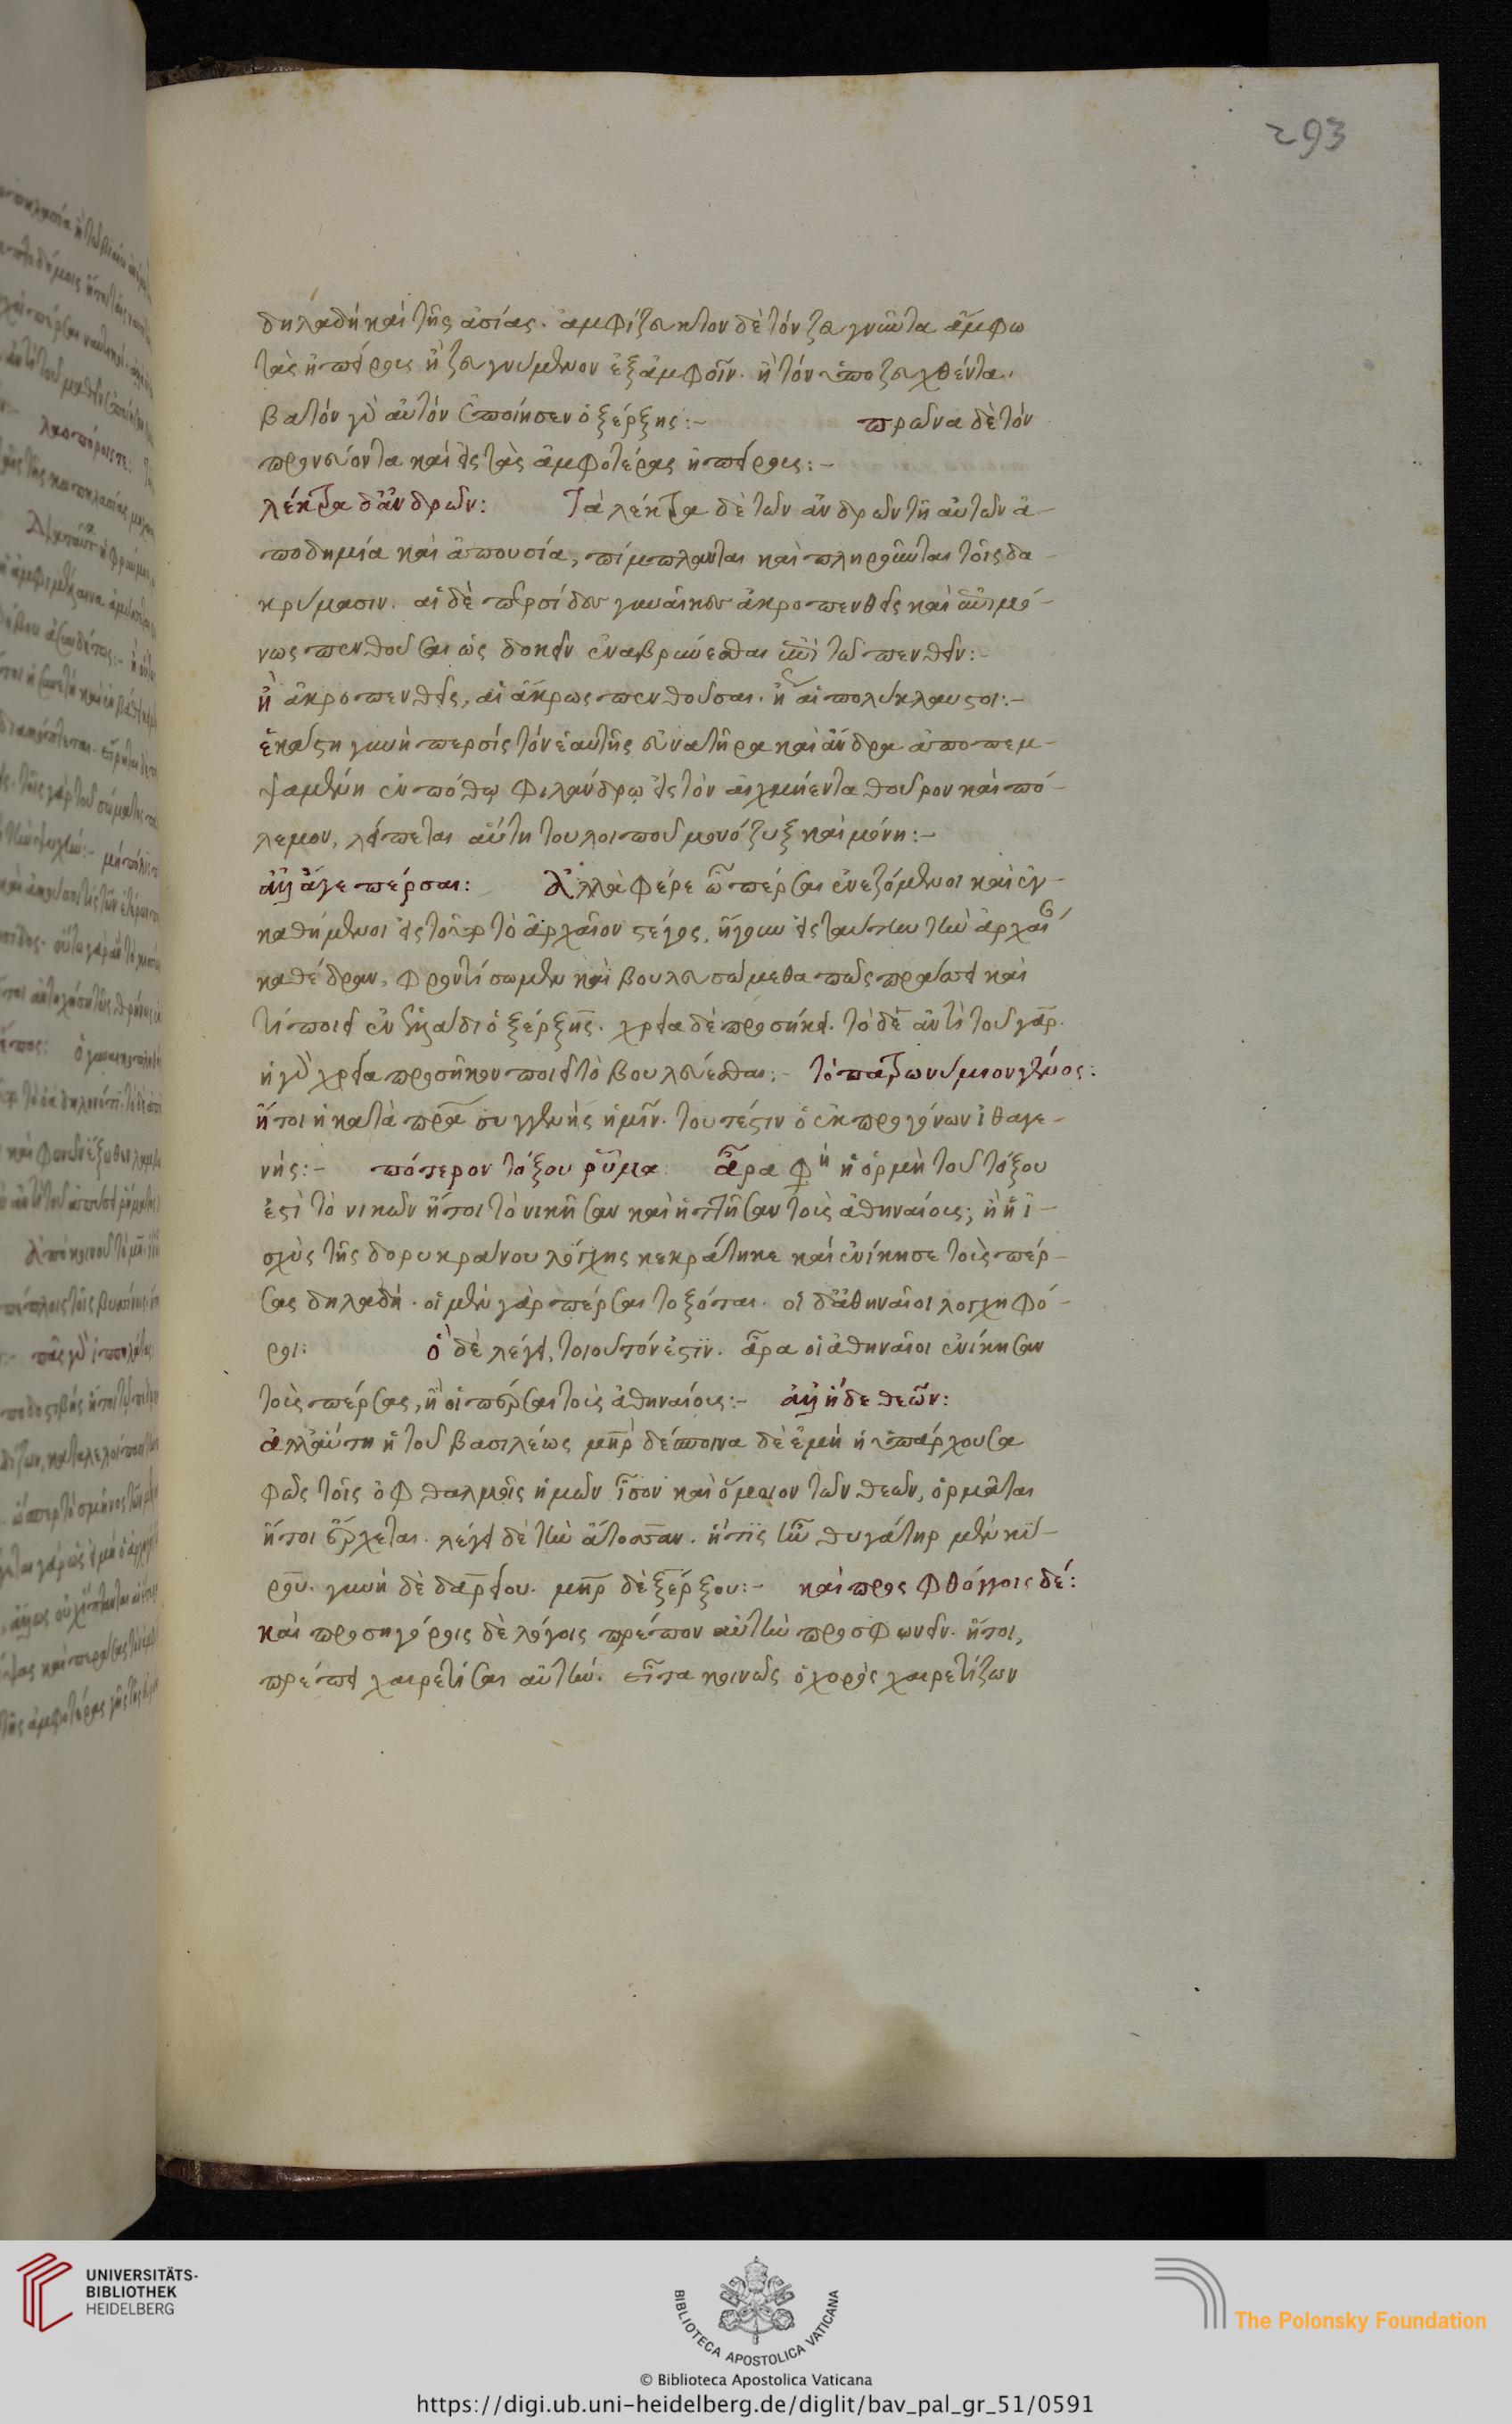 293
δηλαδὴ καὶ τῆς ἀσίας. ἀμφίζευκτον δὲ τὸν ζευγνῦντα ἄμφω
τὰς ἠπείρους ἢ ζευγνύμενον ἐξ ἀμφοῖν. ἢ τὸν ὑποζευχθέντα.
βατὸν γὰρ αὐτὸν ἐποίησεν ὁ ξέρξης:- πρῶνα δὲ τὸν
προνεύοντα καὶ εἰς τὰς ἀμφοτέρας ἠπείρους:-
λέκτρα δ' ἀνδρῶν: Τὰ λέκτρα δὲ τῶν ἀνδρῶν τῇ αὐτῶν ἀ-
ποδημία καὶ ἀπουσία, πίμπλανται καὶ πληροῦνται τοῖς δα-
κρύμασιν. αἱ δὲ περσίδες γυναῖκες ἀκροπενθεῖς καὶ
νως πενθοῦσαι ὡς δοκεῖν ἐναβρύνεσθαι ἐπὶ τῶ πενθεῖν:-
ἢ ἀκροπενθεῖς, αἱ ἄκρως πενθοῦσαι. ἢ αἱ πολύκλαυστοι:-
ἑκάστη γυνὴ περσὶς τὸν ἑαυτῆς εὐνατῆρα καὶ ἄνδρα ἀποπεμ-
ψαμένη ἐν πόθῳ φιλάνδρῳ εἰς τὸν αἰχμήεντα θοῦρον καὶ πό-
λεμον, λείπεται αὕτη τουλοιποῦ μονόζυξ καὶ μόνη:-
ἀλλ' ἄγε πέρσαι: Ἀλλὰ φέρε ὦ πέρσαι ἐνεζόμενοι καὶ ἐγ-
καθήμενοι εἰς τοῦτο τὸ ἀρχαῖον στέγος, ἤγουν εἰς ταύτην τὴν ἀρχαί
καθέδραν, φροντίσωμεν καὶ βουλευσώμεθα πῶς πράττει καὶ
τί ποιεῖ ἐν ἑλλάδι ὁ ξέρξης. χρεία δὲ προσήκει. τὸ δὲ ἀντὶ τοῦ γάρ.
ἡ γὰρ χρεία προσῆκον ποιεῖ τὸ βουλεύεσθαι:- τὸ πατρωνύμιον γένος:
ἤτοι ἡ κατὰ πρα συγγενὴς ἡμῖν. τουτέστιν ὁ ἐκ προγόνων ἰθαγε-
νής:- πότερον τόξου ῥῦμα: ἆρα φη ἡ ὁρμὴ τοῦ τόξου
ἐστὶ τὸ νικῶν ἤτοι τὸ νικῆσαν καὶ ἡττῆσαν τοὺς ἀθηναίους; ἢ ἡ ἰ-
σχὺς τῆς δορυκράνου λόγχης κεκράτηκε καὶ ἐνίκησε τοὺς πέρ-
σας δηλαδή. οἱ μὲν γὰρ πέρσαι τοξόται. οἱ δ' ἀθηναῖοι λογχηφό-
ροι: ὃ δὲ λέγει, τοιοῦτόν ἐστιν. ἆρα οἱ ἀθηναῖοι ἐνίκησαν
τοὺς πέρσας, ἢ οἱ πέρσαι τοὺς ἀθηναίους:- ἀλλ' ἥδε θεῶν:
ἀλλ' αὕτη ἡ τοῦ βασιλέως μηρ δέσποινα δὲ ἐμὴ ἡ ὑπάρχουσα
φῶς τοῖς ὀφθαλμοῖς ἡμῶν ἶσον καὶ ὅμοιον τῶν θεῶν, ὁρμᾶται
ἤτοι ἔρχεται. λέγει δὲ τὴν ἄτοσσαν. ἥτις ἦν θυγάτηρ μὲν κύ-
ρου. γυνὴ δὲ δαρείου. μηρ δὲ ξέρξου:- καὶ προς φθόγγοις δέ:
καὶ προσηγόροις δὲ λόγοις πρέπον αὐτὴν προσφωνεῖν. ἤτοι,
πρέπει χαιρετίσαι αὐτήν. εἶτα κοινῶς ὁ χορὸς χαιρετίζων
UNIVERSITÄTS-
BIBLIOTHEK
HEIDELBERG
BIBLIOTECA APOSTOLICA VATICANA
The Polonsky Foundation
© Biblioteca Apostolica Vaticana
https://digi.ub.uni-heidelberg.de/diglit/bav_pal_gr_51/0591